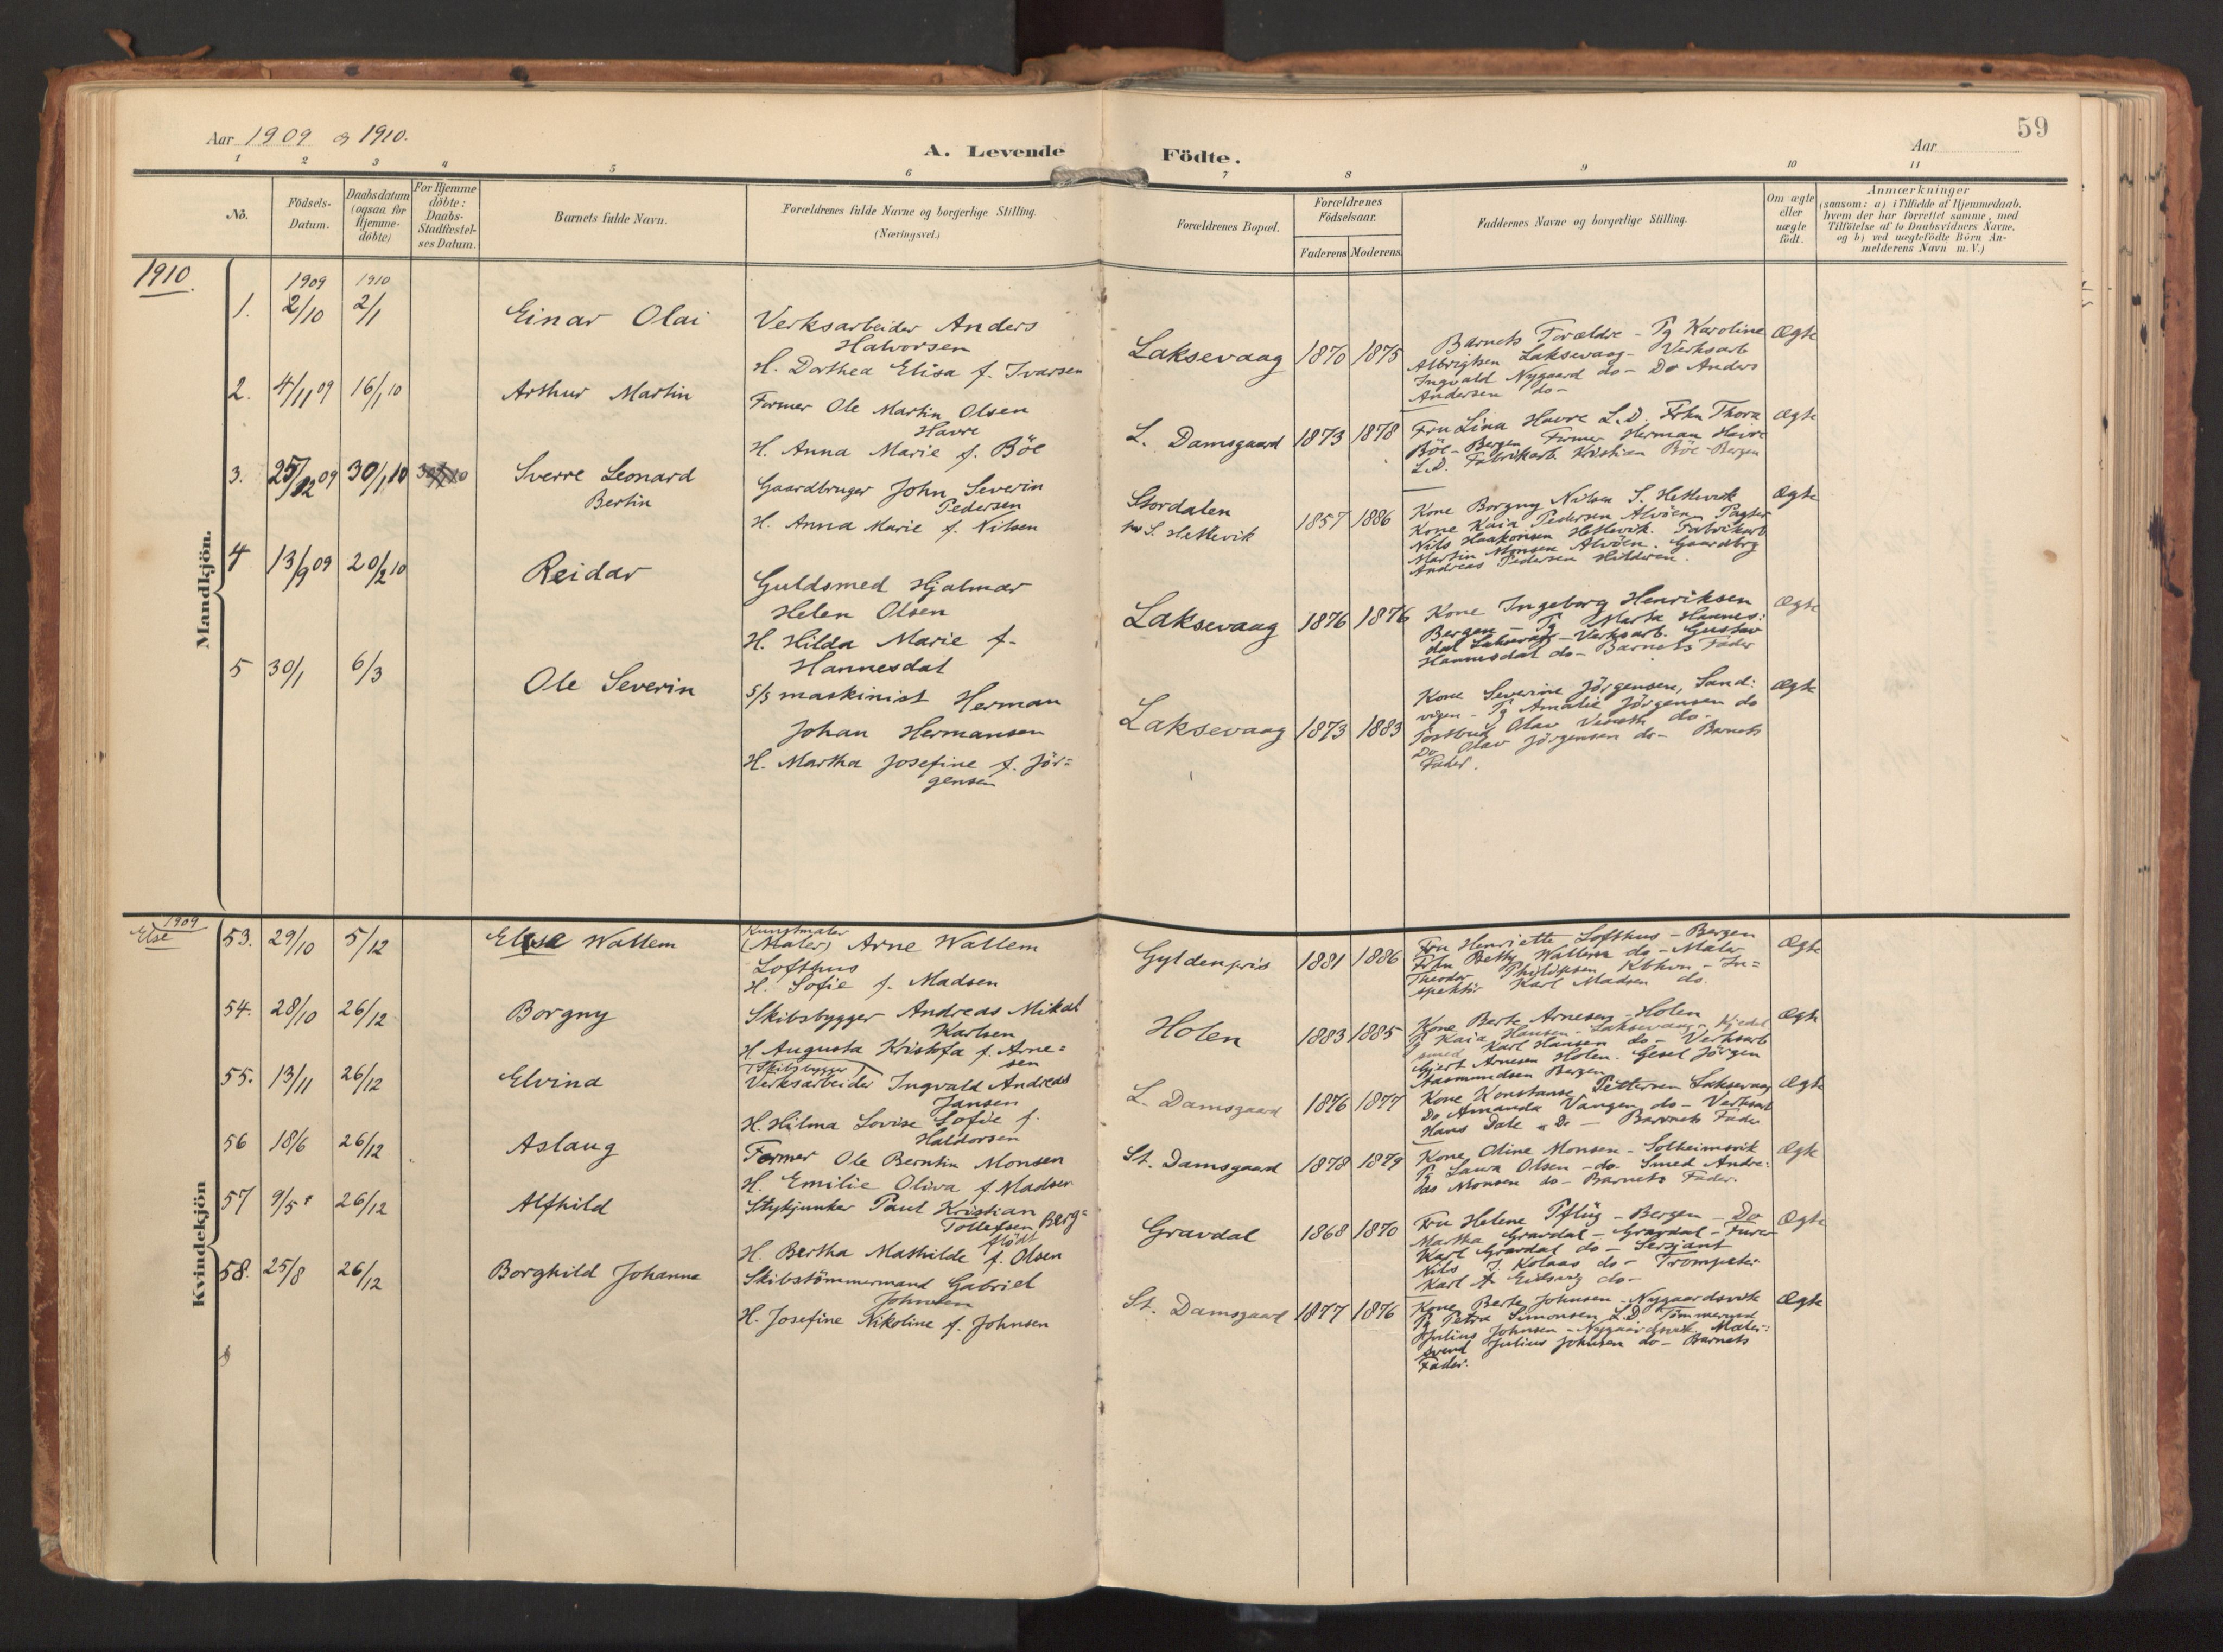 59
Aar 1909 og 1910.
A. Levende Födte.
Aar
1 2 3 4 5 6 7 8 9 10 11
No.
Födsels-
Datum.
Daabsdatum
(ogsaa for
Hjemme-
döbte)
For Hjemme
döbte:
Daabs-
Stadfæstel-
ses Datum.
Barnets fulde Navn.
Forældrenes fulde Navne og borgerlige Stilling.
(Næringsvei.)
Forældrenes Bopæl.
Forældrenes
Födselsaar.
Faderens Moderens
Faddernes Navne og borgerlige Stilling.
Om ægte
eller
uægte
födt.
Anmærkninger
(saasom: a) i Tilfælde af Hjemmedaab,
hvem der har forrettet samme, med
Tilföielse af to Daabsvidners Navne,
og b) ved uægtefödte Börn An-
melderens Navn m.V.)
Mandkjön.
1910
1909 1910
1. 2/10 2/1
Einar Olai
Verksarbeider Anders
Halvorsen
H. Dorthea Elisa f. Ivarsen
Laksevaag 1870 1875
Barnets Forældre - Pg Karoline
Albrigtsen Laksevaag - Verksarb
Ingvald Nygaard do - Do Anders
Andersen do -
Ægte
2. 4/11 09 16/1 10
Arthur Martin
Former Ole Martin Olsen
Havre
H. Anna Marie f. Böe
L. Damsgaard 1873 1878
Fru Lina Havre L.D. Frkn Thora
Böe - Bergen Former Herman Havre
L.D. Fabrikarb. Kristian Böe - Bergen
Ægte
3. 25/12 09 30/1 10
Sverre Leonard
Bertin
Gaardbruger John Severin
Pedersen
H. Anna Marie f. Nilsen
Stordalen
S. Hetlevik
1857 1886
Kone Borgny Nilsen S. Hetlevik
Kone Kaia Pedersen Alvöen
Nils Haakonsen Hetlevik. Fabrikarb
Martin Monsen Alvöen. Gaardbrg
Andreas Pedersen
Ægte
4 13/9 09 20/2 10
Reidar
Guldsmed Hjalmar
Helen Olsen
H. Hilda Marie f.
Hannesdal
Laksevaag 1876 1876
Kone Ingeborg Henriksen
Bergen - Pg Marta Hannes:
dal Laksevaag - Verksarb. Gustav
Hannesdal do - Barnets Fader
Ægte
5 30/1 6/3
Ole Severin
S/s maskinist Herman
Johan Hermansen
H. Martha Josefine f. Jör=
gensen
Laksevaag 1873 1883
Kone Severine Jörgensen, Sand:
vigen - Pg Amalie Jörgensen do
Postbud Olav do.
Do Olav Jörgensen do - Barnets
Fader.
Ægte
Kvindekjön
1909
Else
53. 29/10 5/12
Else Wallem
Kunstmaler
(Maler) Arne Wallem
Lofthus
H. Sofie f. Madsen
Gyldenpris 1881 1886
Fru Henriette Lofthus - Bergen
Frkn Betty Wallem do - Maler
Theodor Philipsen Kbhvn - In=
spektör Karl Madsen do.
Ægte
54. 28/10 26/12
Borgny
Skibsbygger Andreas Mikal
Karlsen
H. Augusta Kristofa f. Arne=
sen
Holen 1883 1885
Kone Berte Arnesen - Holen
Pg Kaia Hansen - Laksevaag - Kjedel
smed Karl Hansen do - Verksarb
Gjert Arnesen Holen. Gesel Jörgen
Aasmundsen Bergen
Ægte
55. 13/11 26/12
Elvina
(Skibsbygger)
Verksarbeider Ingvald Andreas
Jansen
H. Hilma Lovise Sofie f.
Haldorsen
L. Damsgaard 1876 1877
Kone Konstanse Pettersen Laksevaag
Do Amanda Vangen do - Verksarb
Hans Dale " Do - Barnets Fader
Ægte
56 18/6 26/12
Aslaug
Former Ole Berntin Monsen
H. Emilie Oliva f. Madsen
St. Damsgaard 1878 1879
Kone Oline Monsen - Solheimsvik
Pg Laura Olsen - do - Smed Andre:
as Monsen do - Barnets Fader.
Ægte
57 9/5 26/12
Alfhild
Stykjunker Paul Kristian
Tollefsen Berg=
flödt
H. Bertha Mathilde f. Olsen
Gravdal 1868 1870
Fru Helene Pflüg - Bergen - Do
Martha Gravdal - Gravdal - Furer
Karl Gravdal do - Sersjant
Nils J. Kolaas do - Trompeter
Karl A do -
Ægte
58. 25/8 26/12
Borghild Johanne
Skibstömmermand Gabriel
Johnsen
H. Josefine Nikoline f. Johnsen
St. Damsgaard 1877 1876
Kone Berte Johnsen - Nygaardsvik
Pg Petra Simonsen L.D. Tömmermd
Julius Johnsen - Nygaardsvik. Maler:
svend Julius Johnsen do - Barnets
Fader.
Ægte